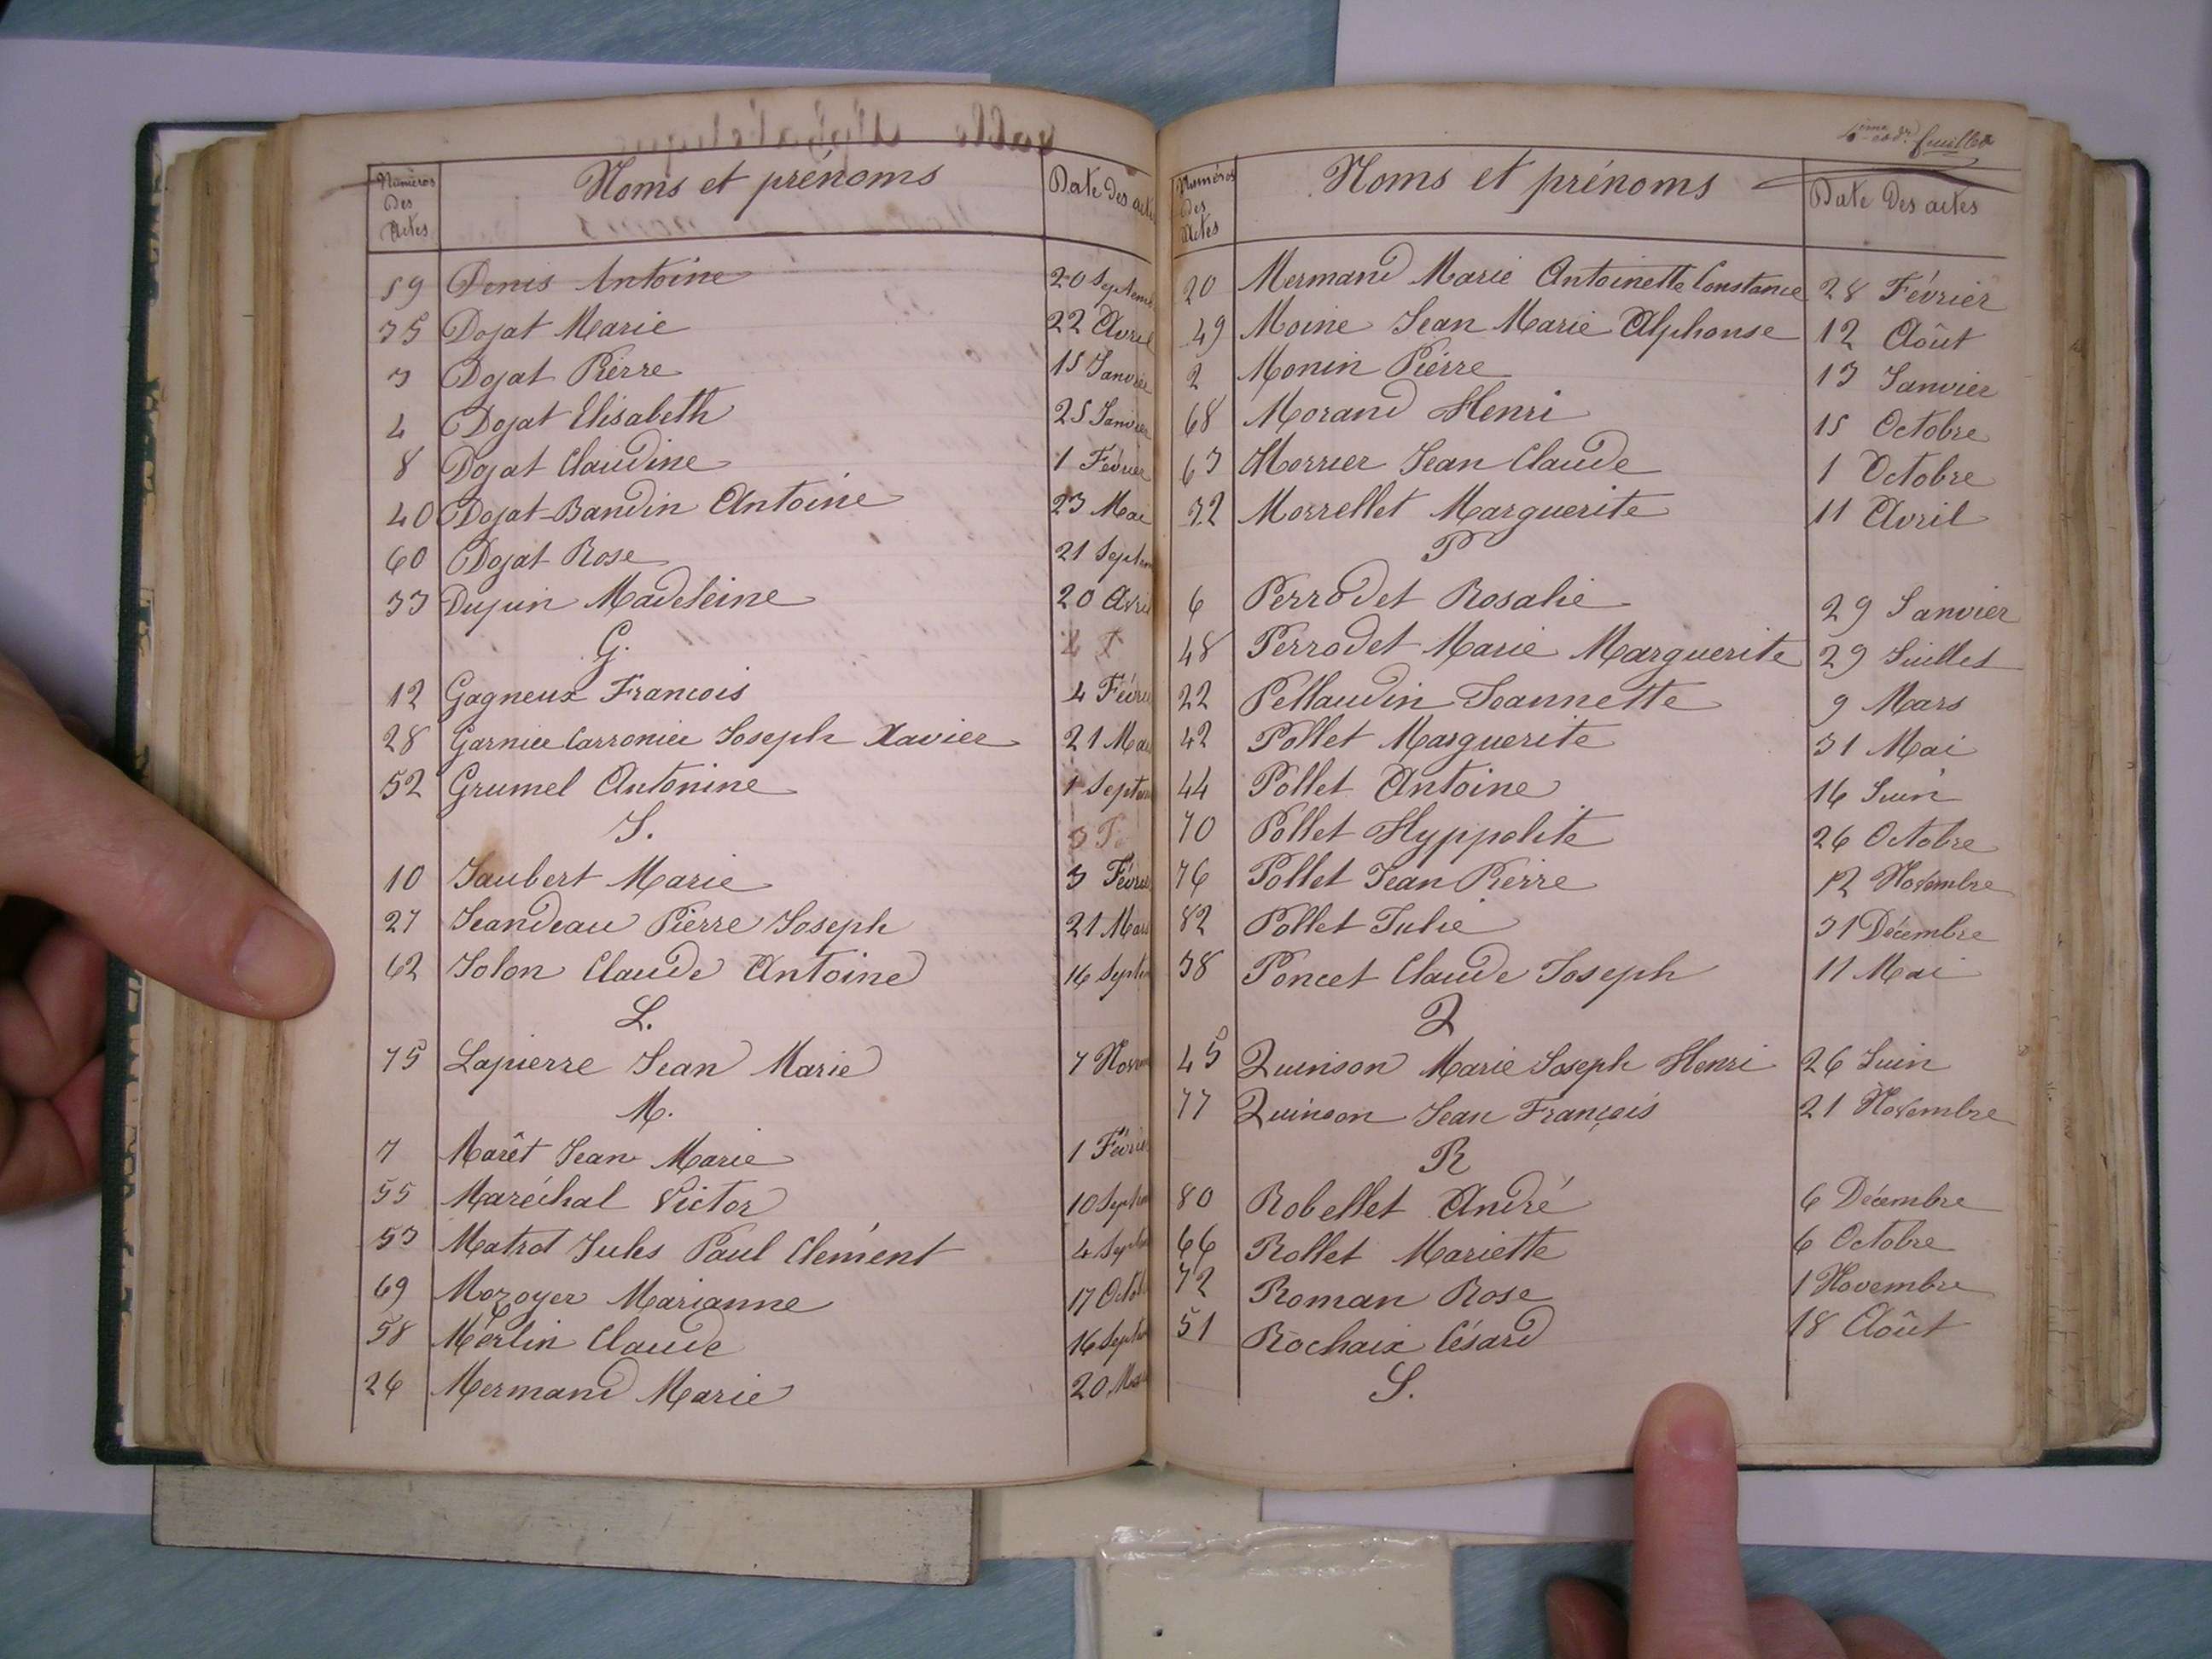 Numéros des Actes | Noms et prénoms | Date des actes
59 Denis Antoine 20 Septemb
35 Dojat Marie 22 Avril
3 Dojat Pierre 15 Janvier
4 Dojat Elisabeth 25 Janvier
8 Dojat Claudine 1 Février
40 Dojat-Bandin Antoine 23 Mai
60 Dojat Rose 21 Septem
33 Dujuin Madeleine 20 Avril
G.
12 Gagneux Francois 4 Févrie
28 Garnier Carronier Joseph Xavier 21 Mars
52 Grumel Antonine 1 Septem
J.
10 Jaubert Marie 3 Févrie
27 Jeandeau Pierre Joseph 21 Mars
62 Jolon Claude Antoine 16 Septem
L.
75 Lapierre Jean Marie 7 Novem
M.
7 Marêt Jean Marie 1 Février
55 Maréchal Victor 10 Septem
53 Matrot Jules Paul Clément 4 Septe
69 Mozoyer Marianne 17 Octob
58 Merlin Claude 16 Septem
26 Mermand Marie 20 Mars
feuillet
Numéros des Actes | Noms et prénoms | Date des actes
20 Mermand Marie Antoinette Constance 28 Février
49 Moine Jean Marie Alphonse 12 Août
2 Monin Pierre 13 Janvier
68 Morand Henri 15 Octobre
63 Morrier Jean Claude 1 Octobre
32 Morrellet Marguerite 11 Avril
P
6 Perrodet Rosalie 29 Janvier
48 Perrodet Marie Marguerite 29 Juillet
22 Pellaudin Jeannette 9 Mars
42 Pollet Marguerite 31 Mai
44 Pollet Antoine 16 Juin
70 Pollet Hyppolite 26 Octobre
76 Pollet Jean Pierre 12 Novembre
82 Pollet Julie 31 Décembre
38 Poncet Claude Joseph 11 Mai
Q
45 Quinson Marie Joseph Henri 26 Juin
77 Quinson Jean François 21 Novembre
R
80 Robellet André 6 Décembre
66 Rollet Mariette 6 Octobre
72 Roman Rose 1 Novembre
51 Rochaix Césard 18 Août
S.